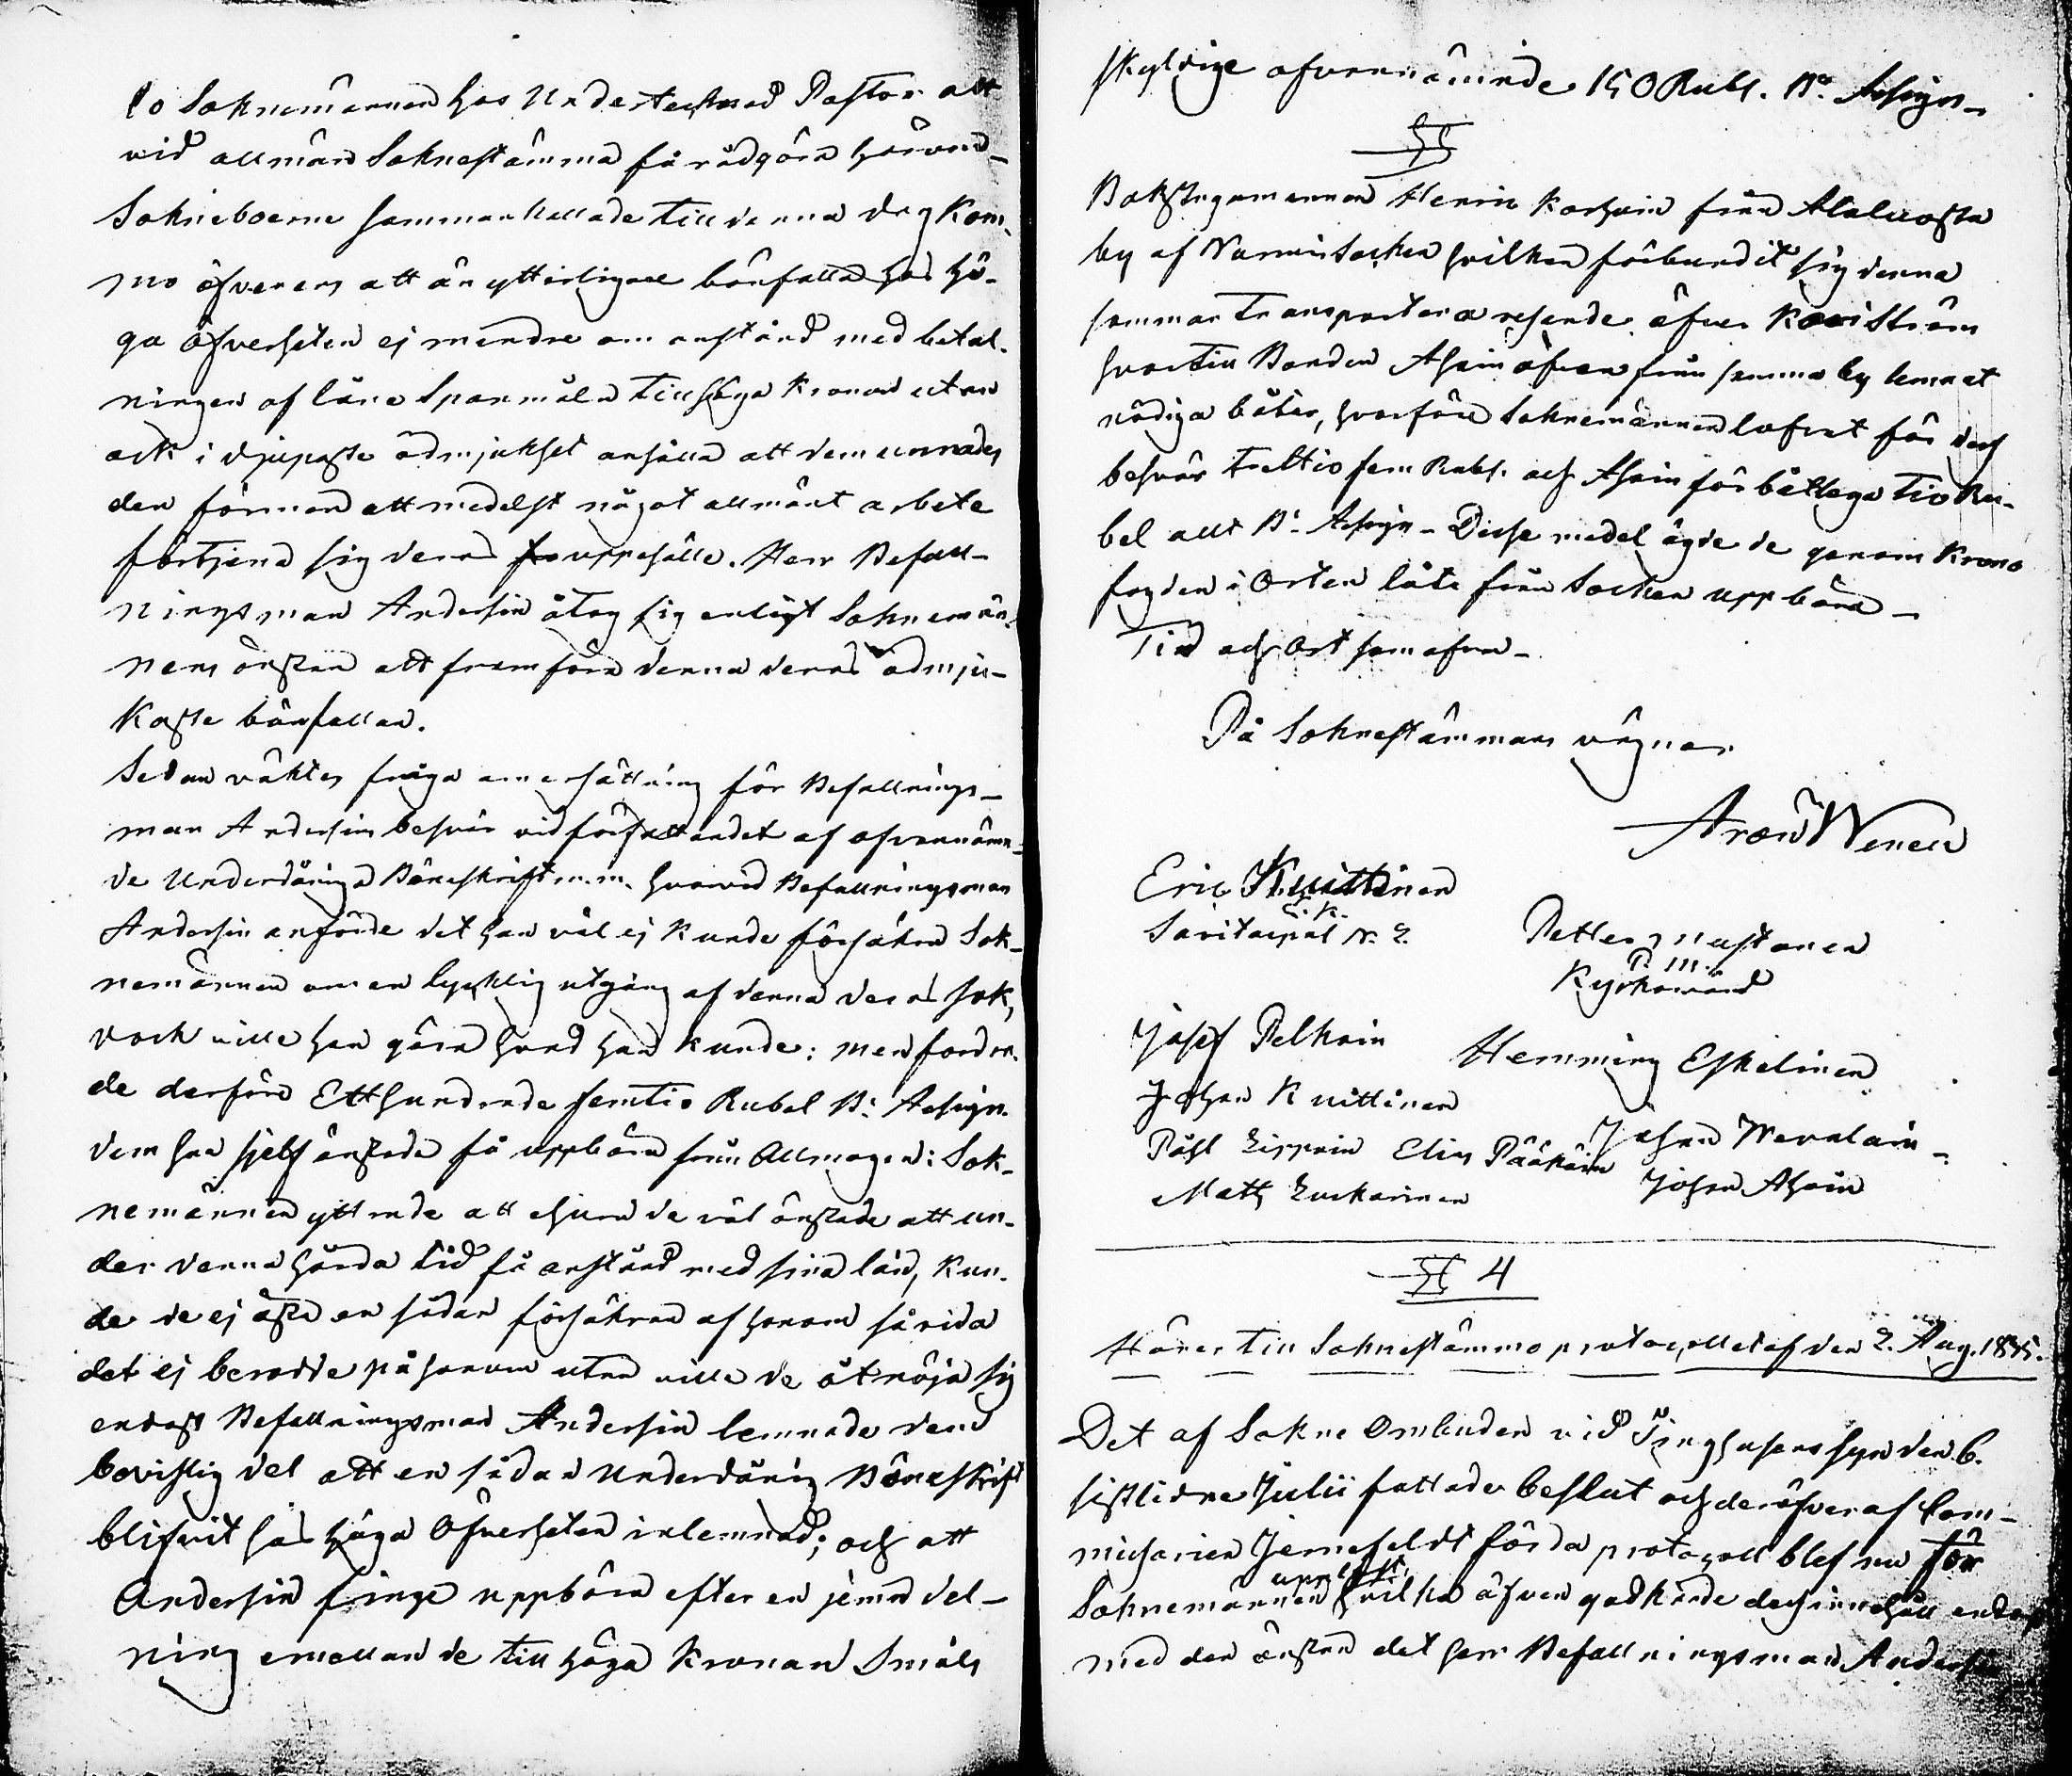 to Soknemännen hos Undertecknad Pastor att
vid allmän Soknestämma få rådgöra härom_
Sokneboerne sammankallade till denna dag kom-
mo öfverens att än ytterligare bönfalla hos Hö-
ga öfverheten ej mindre om anstånd med betal-
ningen af låne Spanmåln till höga Kronan utan
ock i djupaste ödmjukhet anhålla att dem unnades
den förmon att medelst något allmänt arbete
förtjena sig deras uppehälle. Herr Befall-
ningsman Andersin åtog sig enligt Soknemän-
nens önskan att framföra denna deras ödmju-
kaste bönfallan.
Sedan väktes fråga om ersättning för Befallnings-
man Andersins besvär vid författandet af ofvannämn-
de Underdåniga Böneskrift m.m. hvarvid Befallningsman
Andersin anförde det han väl ej kunde försäkra Sok-
nemännen om en lycklig utgång af denna deras sak,
dock ville han göra hvad han kunde; men fordra-
de derföre Etthundrade femtio Rubel B: Assign.
dem han sjelf önskade få uppbära från Allmogen: Sok-
nemännen yttrade att ehuru de väl önskade att un-
der denna hårda tid få anstånd med sina lån, kun-
de de ej äska en sådan försäkran af honom så vida
det ej berodde på honom utan ville de åtnöja sig
endast Befallningsman Andersin lemnade dem
bevislig del att en sådan Underdånig Böneskrift
blifvit hos Höga Öfverheten inlemnad; och att
Andersin finge uppbära efter en jemn del-
ning emellan de till höga Kronan Småls
skyldige ofvannämnde 150 Rubl. Bo Assign_
§
Båkstugumannen Henric Karhuin från
by af Nurmis Socken hvilken förbundit sig denna
sommar transportera resande öfver Kovi Ström
hvartill Bonden Ahoin äfven från samma by lemnat
nödiga båtar, hvarföre Soknemännen lofvat för dess
besvär Trettio fem Rubl. och Ahoin för båtlega Tio Ru-
bel allt B: Assign_ Desse medel ägde de genom Krono
fogden i Orten låta från Socken uppbära_
Tid och Ort som ofvan_
På Soknestämmans vägnar
Aron Wenell
Eric Knittinen
E. K.
Savitaipal N. 2.
Petter Mustonen
P. M.
Kyrkowärd
Josef Pelkoin
Hemming Eskelinen
Johan Knittinen
Påhl Lippoin Elias Pääkköin Johan Wornlain_
Matts Luckarinen Johan Ahoin
§ 4
Hörer till Soknestämmo protocollet af den 2. Aug. 1835.
Det af Sokne Ombuden vid Tinghusens syn den 6.
sistlidne Julii fattade beslut och deröfver af Com-
missarien Jernefeldt förda protocoll blef nu för
uppläst,
Soknemännen hvilka äfven godkände dess innehåll endast
med den önskan det herr Befallningsman Andersin